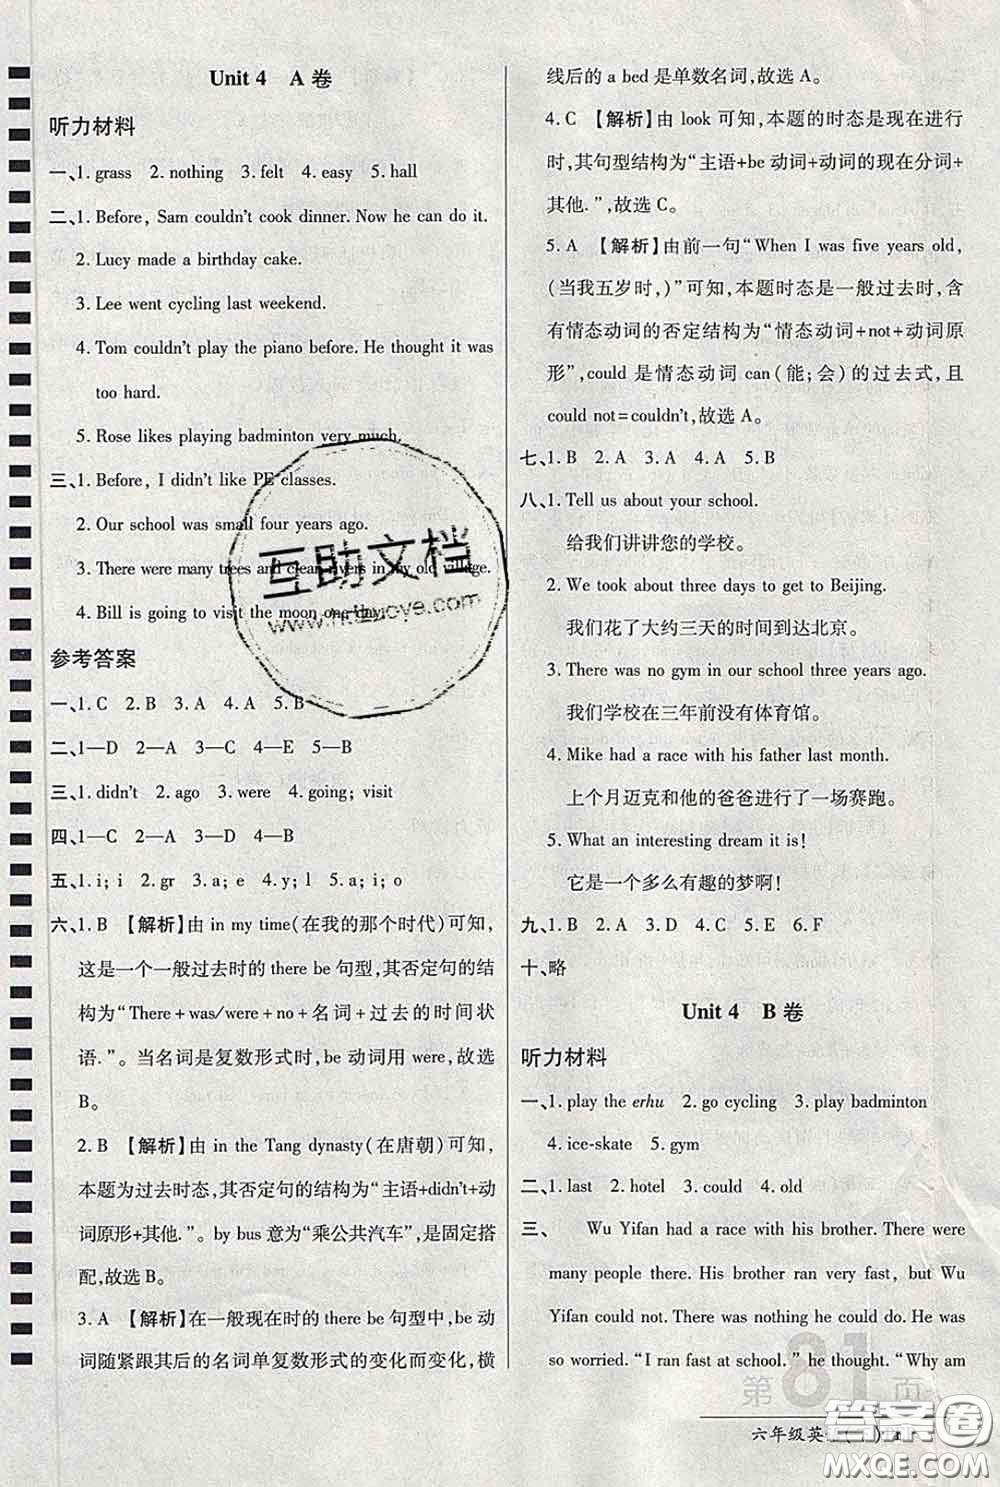 Unit 4　A 卷
听力材料
一、1. grass　2. nothing　3. felt　4. easy　5. hall
二、1. Before, Sam couldn't cook dinner. Now he can do it.
2. Lucy made a birthday cake.
3. Lee went cycling last weekend.
4. Tom couldn't play the piano before. He thought it was
too hard.
5. Rose likes playing badminton very much.
三、1. Before, I didn't like PE classes.
2. Our school was small four years ago.
3. There were many trees and clean rivers in my old village.
4. Bill is going to visit the moon one day.
参考答案
一、1. C　2. B　3. A　4. A　5. B
二、1—D　2—A　3—C　4—E　5—B
三、1. didn't　2. ago　3. were　4. going; visit
四、1—C　2—A　3—D　4—B
五、1. i; i　2. gr　3. a; e　4. y; l　5. a; i; o
六、1. B　【解析】由 in my time(在我的那个时代)可知,
这是一个一般过去时的 there be 句型,其否定句的结
构为“There+was/were+no+名词+过去的时间状
语.”。当名词是复数形式时,be 动词用 were,故选
B。
2. B　【解析】由 in the Tang dynasty(在唐朝)可知,
本题为过去时态,其否定句的结构为“主语+didn't+动
词原形+其他.”。by bus 意为“乘公共汽车”,是固定搭
配,故选 B。
3. A　【解析】在一般现在时的 there be 句型中,be 动
词随紧跟其后的名词单复数形式的变化而变化,横
线后的 a bed 是单数名词,故选 A。
4. C　【解析】由 look 可知,本题的时态是现在进行
时,其句型结构为“主语+be 动词+动词的现在分词+
其他.”,故选 C。
5. A　【解析】由前一句“When I was five years old,
(当我五岁时,)”可知,本题时态是一般过去时,含
有情态动词的否定结构为“情态动词+not+动词原
形”,could 是情态动词 can(能;会)的过去式,且
could not=couldn't,故选 A。
七、1. B　2. A　3. A　4. A　5. B
八、1. Tell us about your school.
给我们讲讲您的学校。
2. We took about three days to get to Beijing.
我们花了大约三天的时间到达北京。
3. There was no gym in our school three years ago.
我们学校在三年前没有体育馆。
4. Mike had a race with his father last month.
上个月迈克和他的爸爸进行了一场赛跑。
5. What an interesting dream it is!
它是一个多么有趣的梦啊!
九、1. B　2. A　3. D　4. C　5. E　6. F
十、略
Unit 4　B 卷
听力材料
一、1. play the erhu　2. go cycling　3. play badminton
4. ice-skate　5. gym
二、1. last　2. hotel　3. could　4. old
三、　Wu Yifan had a race with his brother. There were
many people there. His brother ran very fast, but Wu
Yifan could not. There was nothing he could do. He was
so worried. “I ran fast at school.” he thought. “Why am
第 81 页
六年级英
互助文档
答案圈
MXQE.COM